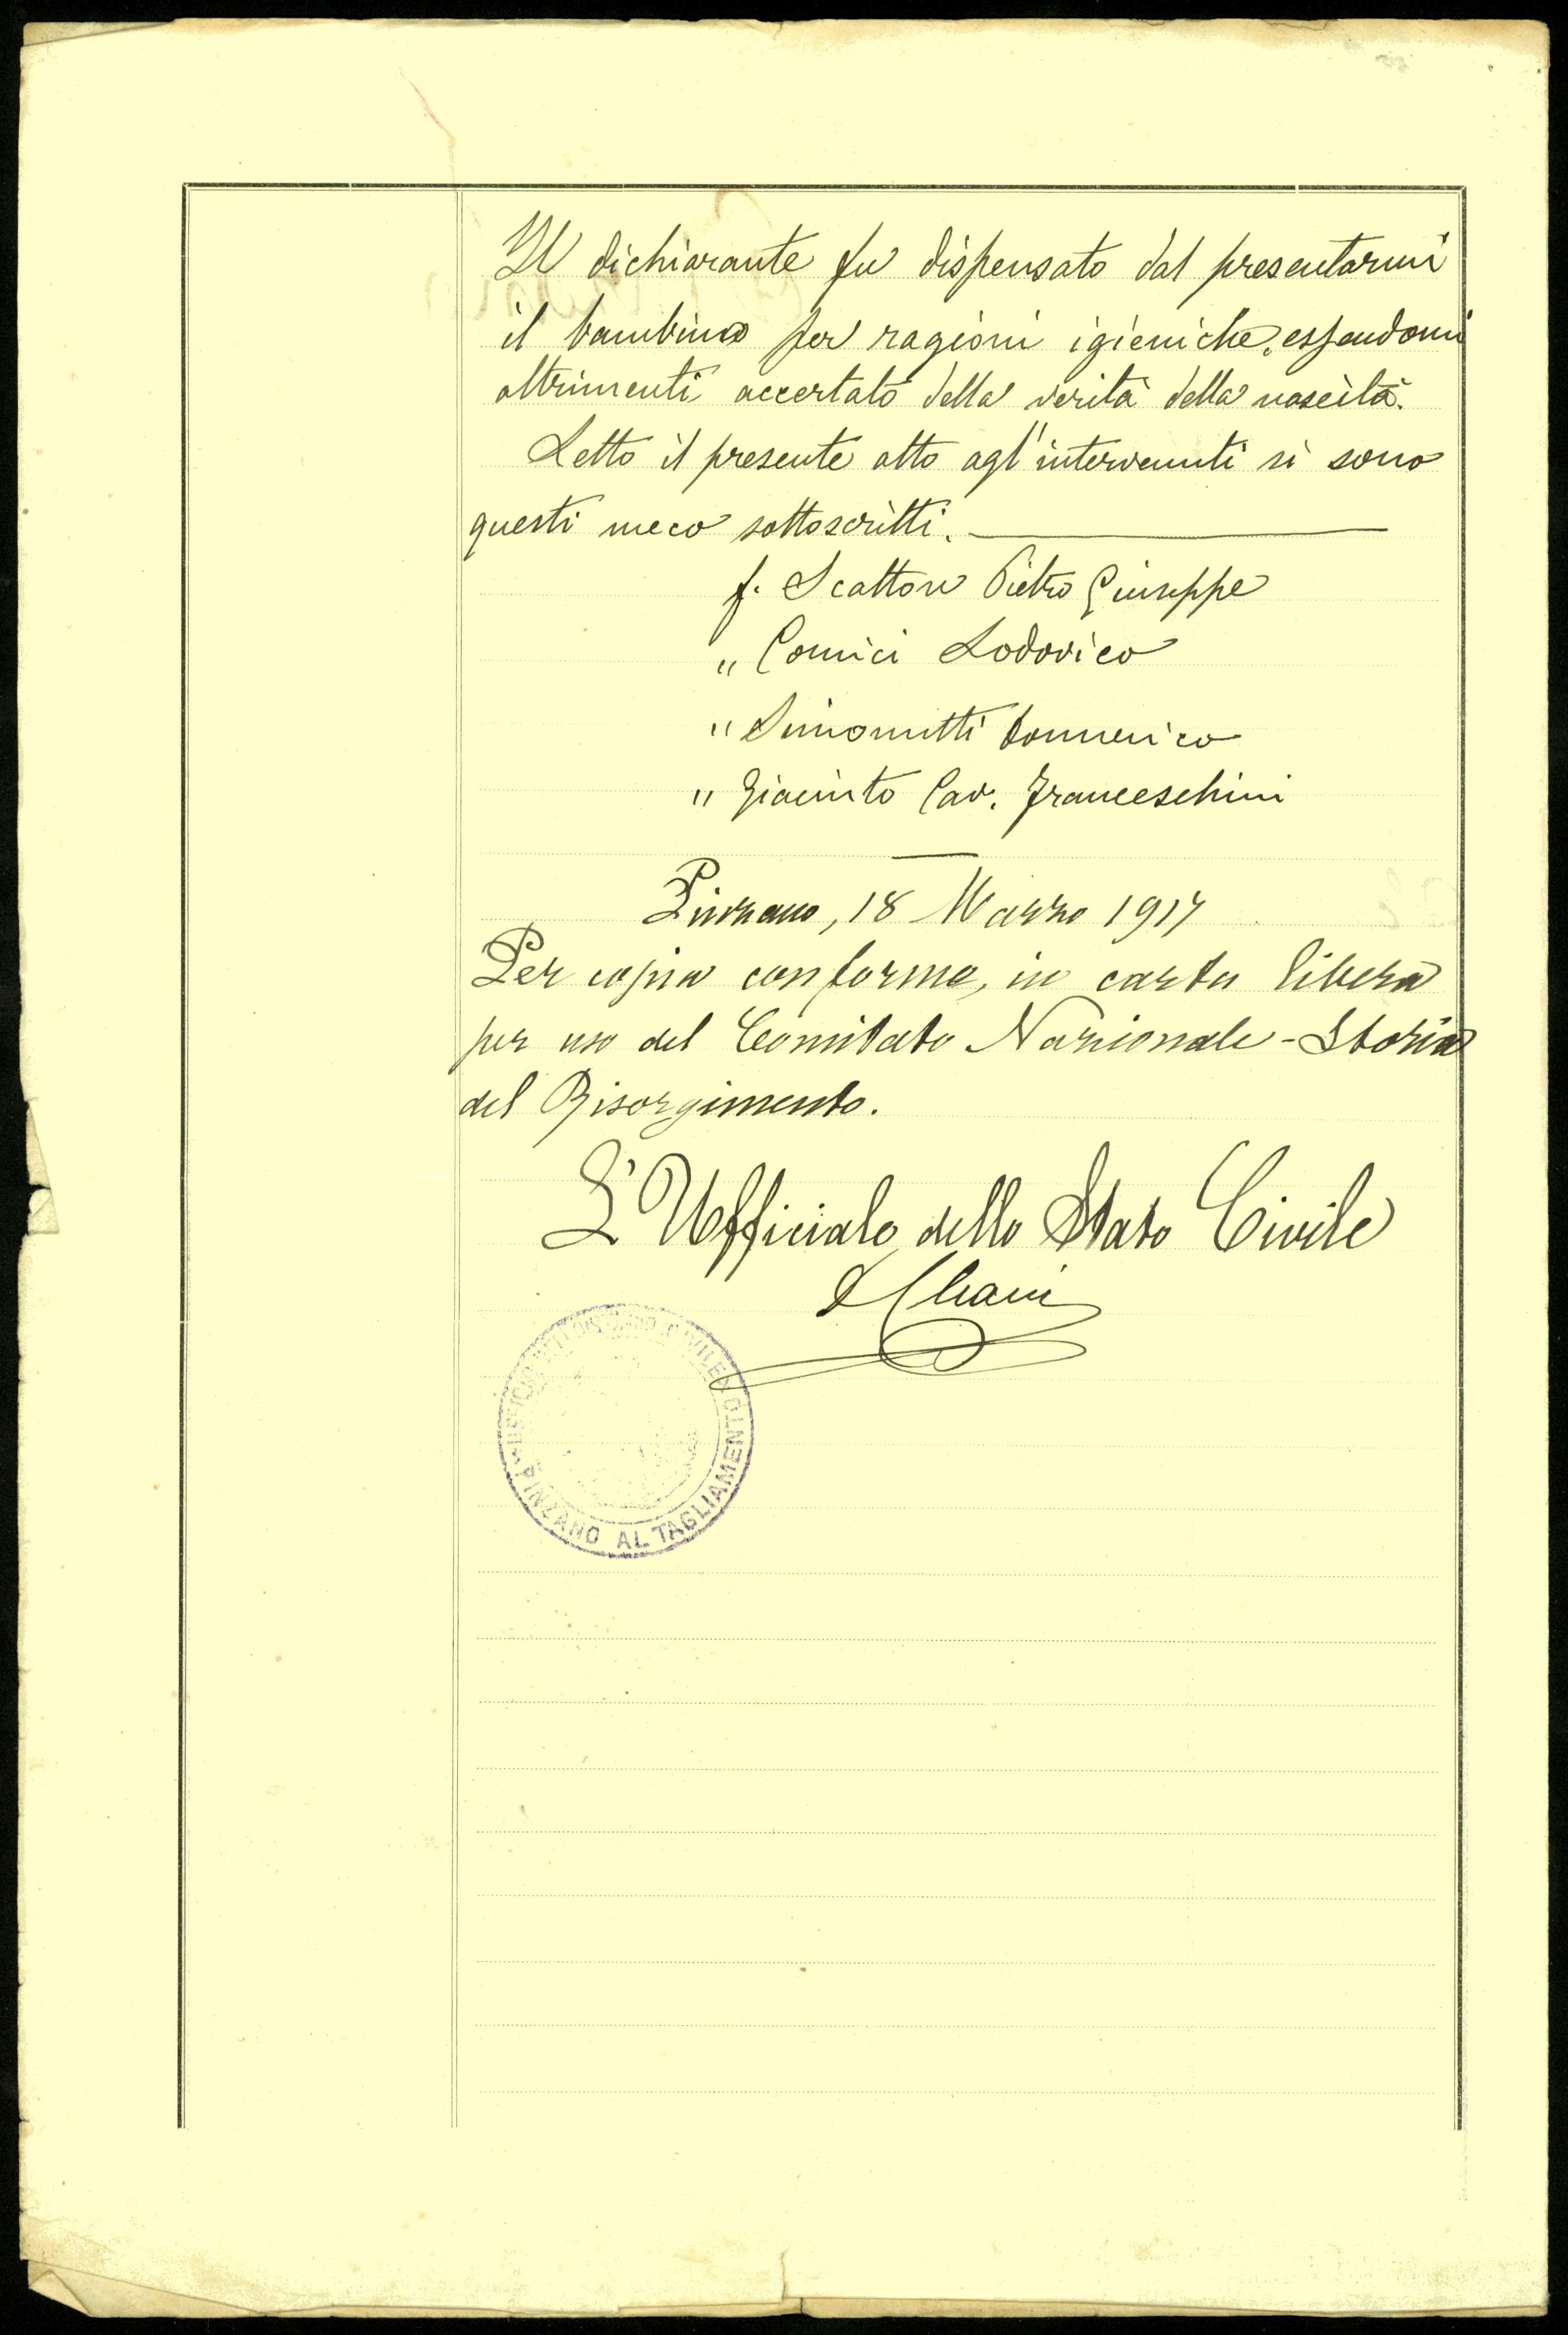 Il dichiarante fu dispensato dal presentarmi
il bambino per ragioni igieniche, essendomi
altrimenti accertato della verità della nascita.
Letto il presente atto agl'intervenuti si sono
questi meco sottoscritti.
f. Scatton Pietro Giuseppe
" Comici Lodovico
" Simonutti Domenico
" Giacinto Cav. Franceschini
Pinzano, 18 Marzo 1917
Per copia conforme, in carta libera
per uso del Comitato Nazionale - Storia
del Risorgimento.
L'Ufficiale dello Stato Civile
UFFICIO DELLO STATO CIVILE
PINZANO AL TAGLIAMENTO